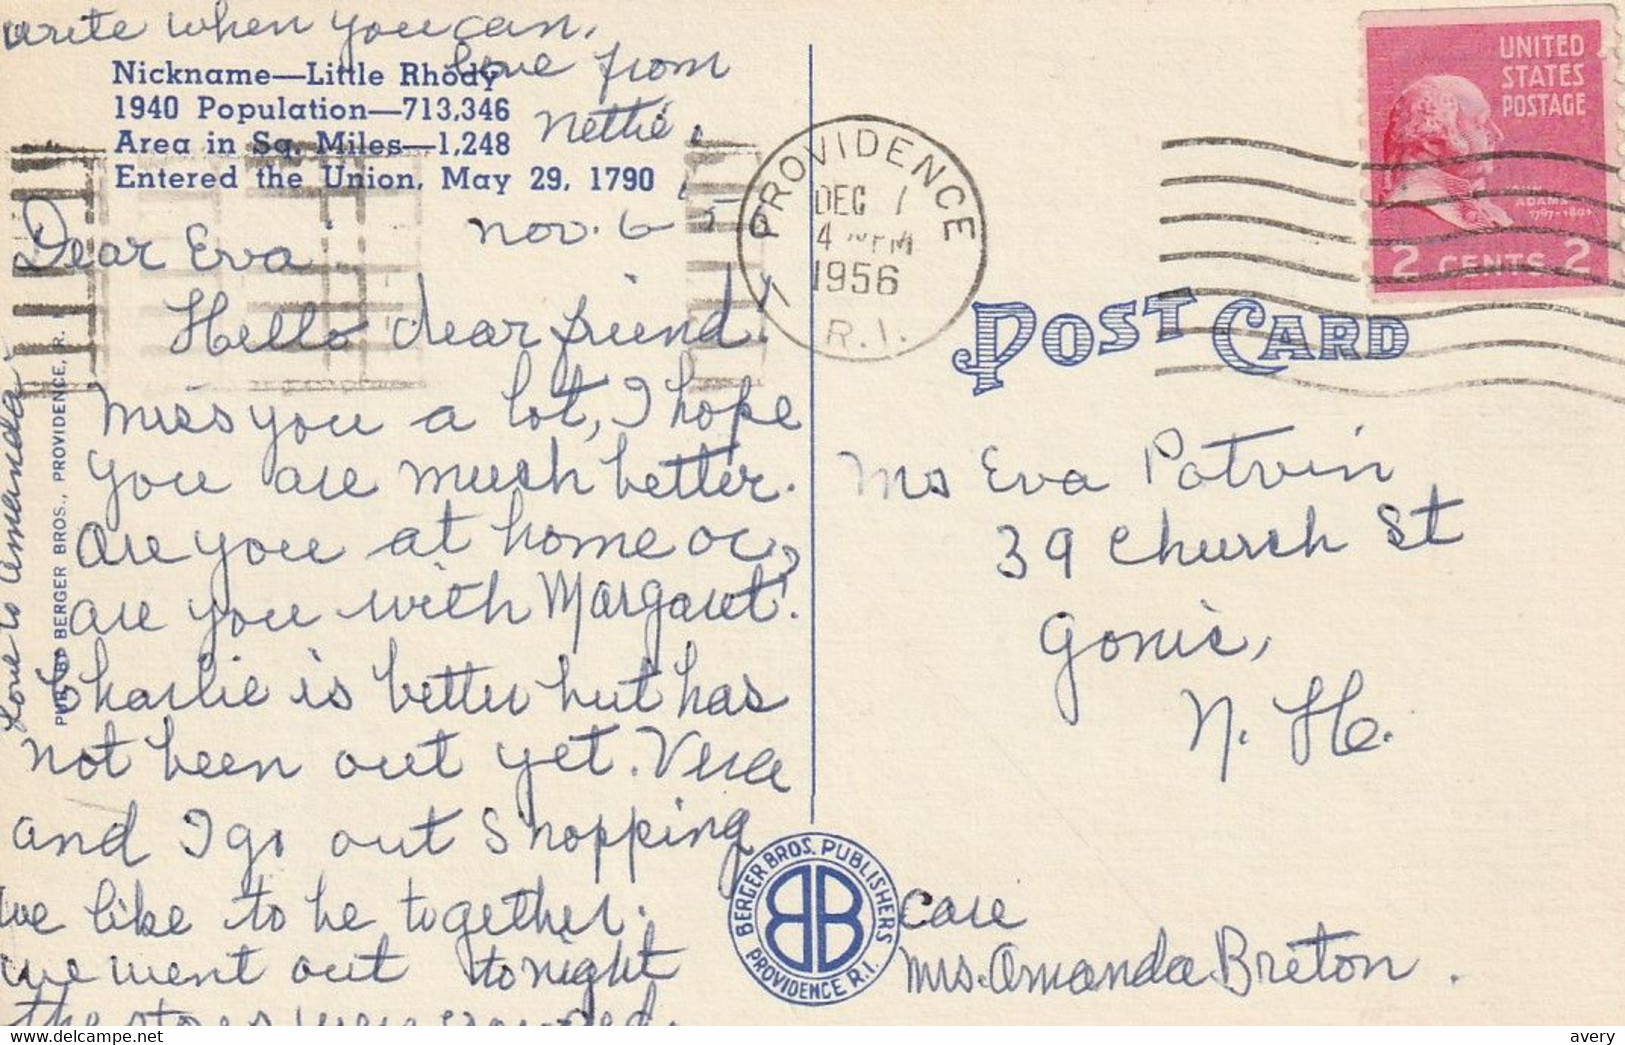 write when you can.
love from
Nettie.
Nickname—Little Rhody
1940 Population—713,346
Area in Sq. Miles—1,248
Entered the Union, May 29, 1790
Nov. 6
Dear Eva
Hello dear friend!
Miss you a lot, I hope
you are much better.
Are you at home or,
are you with Margaret?
Charlie is better but has
not been out yet. Vera
and I go out shopping
we like to be together.
we went out tonight
the stores were crowded.
Love to Amanda
PUB. BY BERGER BROS., PROVIDENCE, R. I.
PROVIDENCE
DEC 1
4 PM
1956
R.I.
UNITED
STATES
POSTAGE
ADAMS
1797-1801
2 CENTS 2
POST CARD
Ms Eva Potvin
39 Church St
Gonic,
N. H.
care
Mrs. Amanda Breton.
BERGER BROS. PUBLISHERS
BB
PROVIDENCE R.I.
delcampe.net
avery